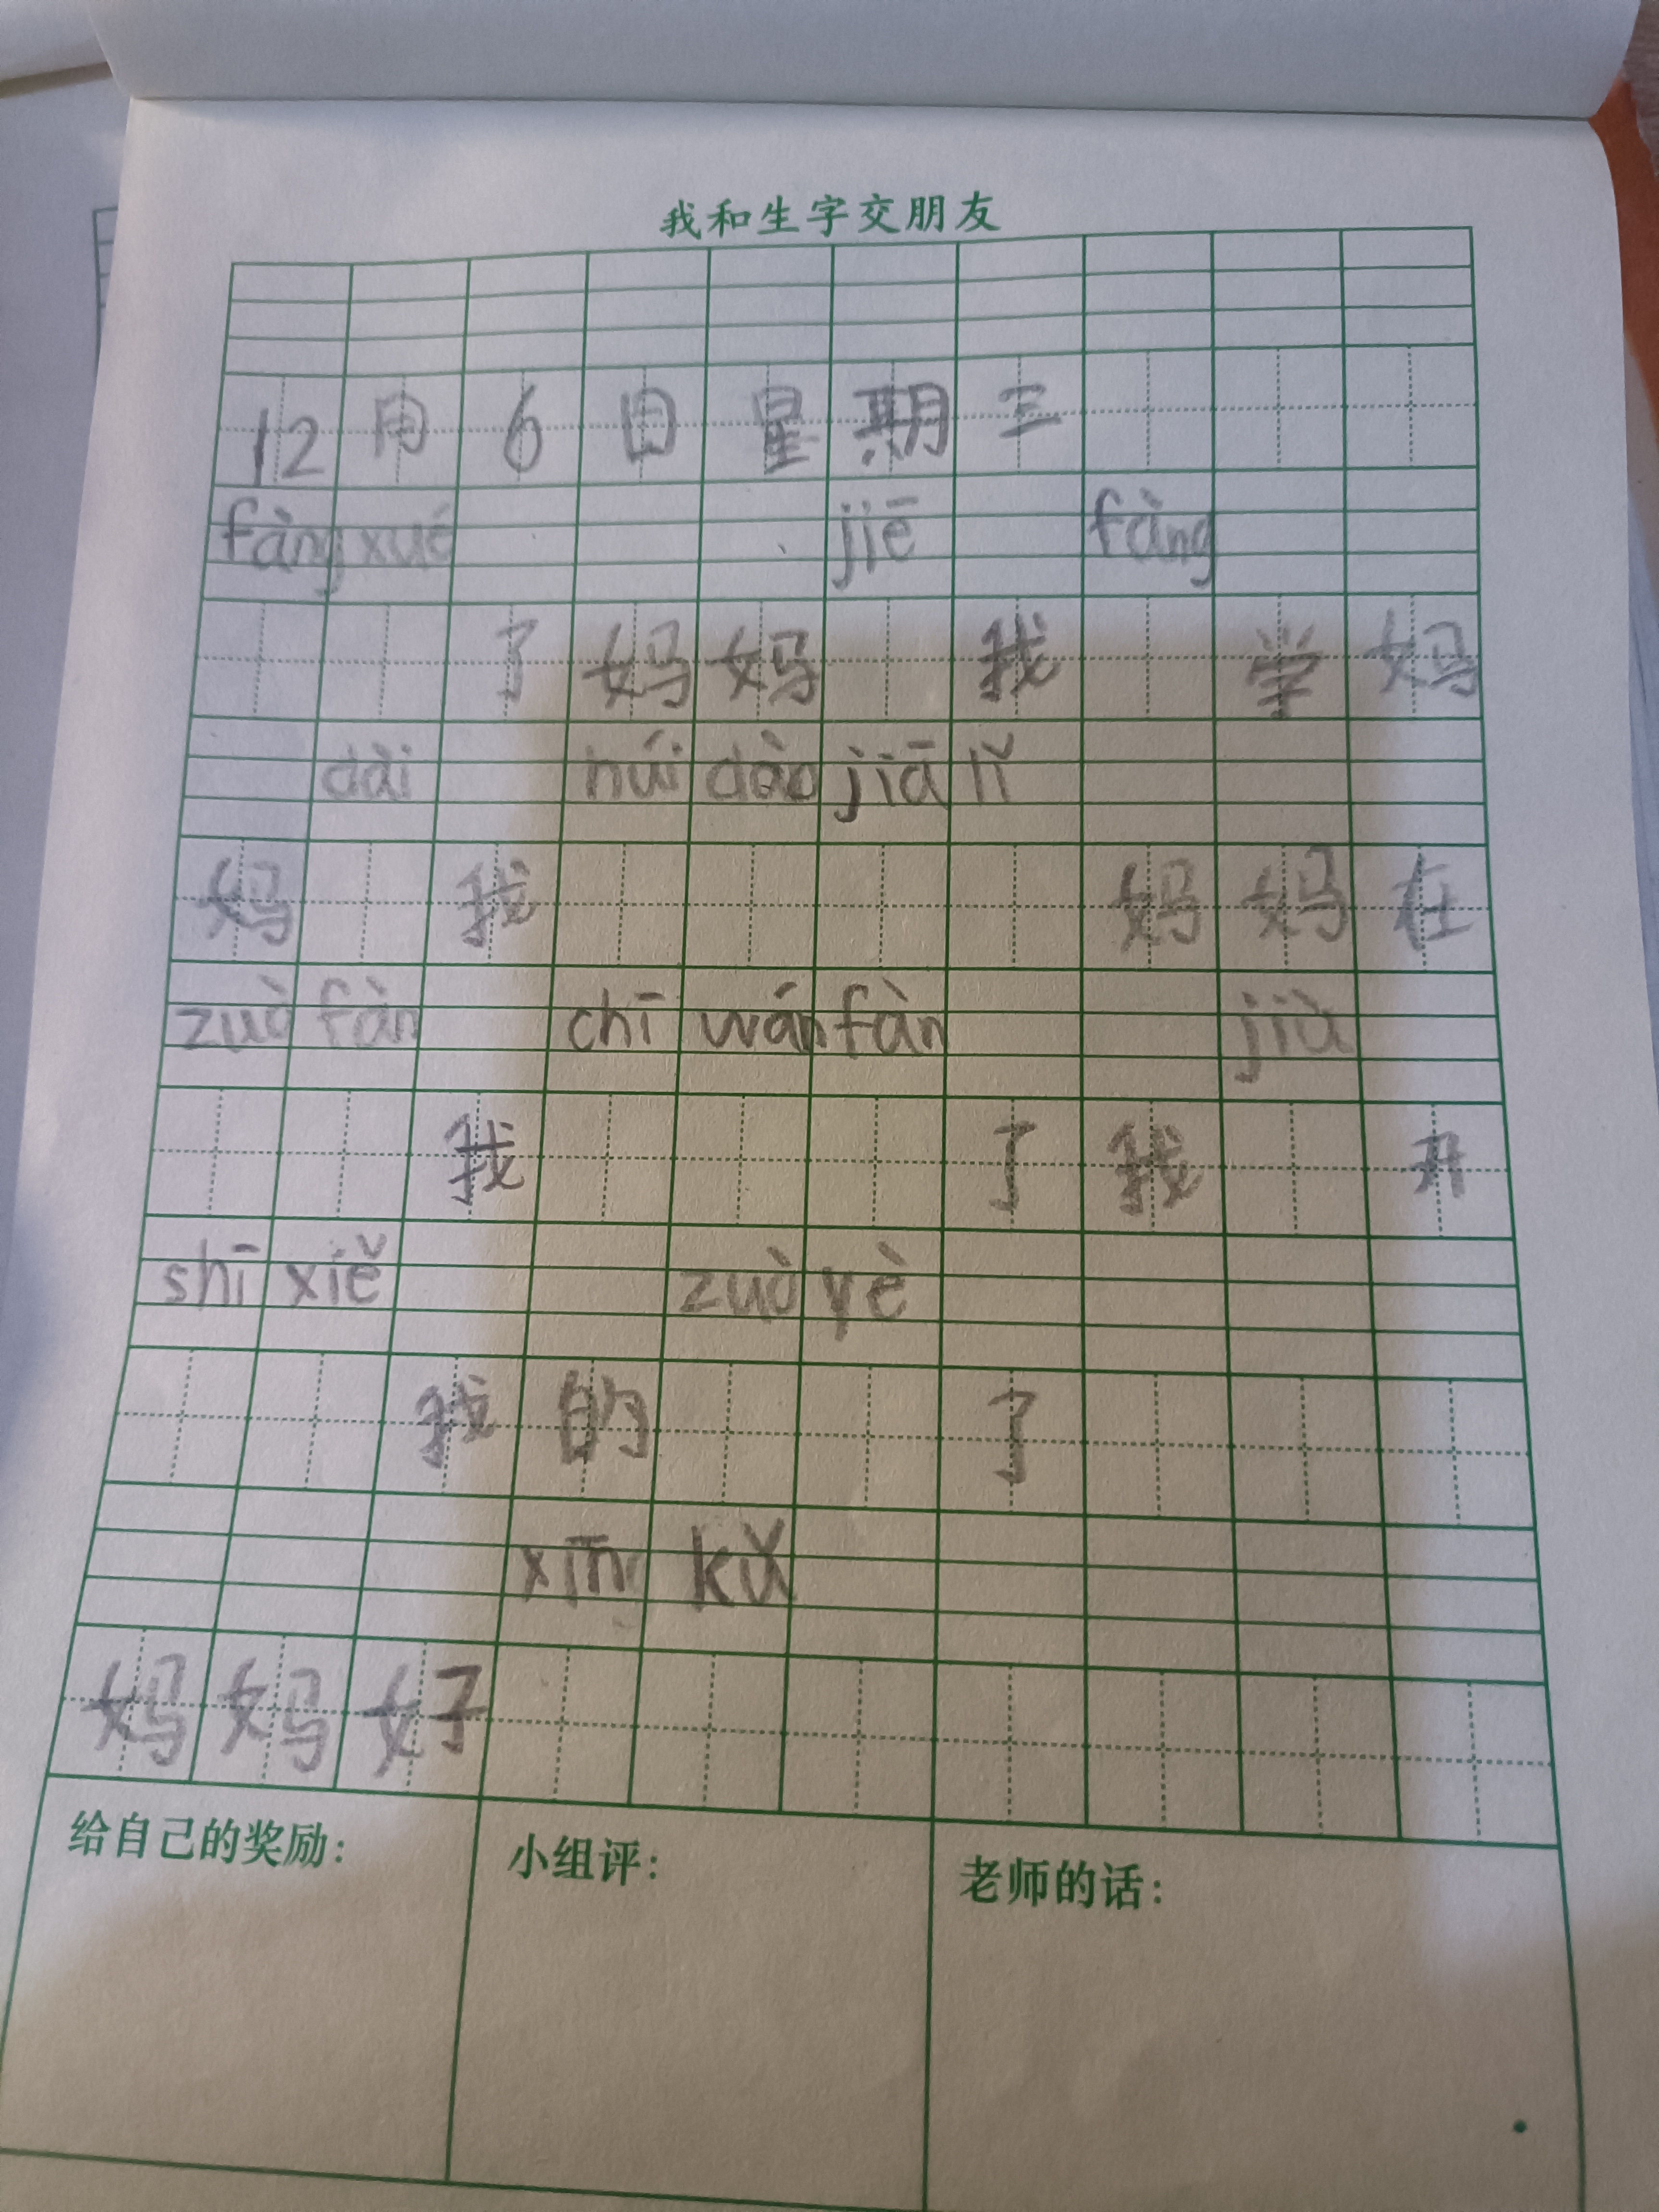 我和生字交朋友
12月6日星期三
fàng xué jiē fàng
了妈妈我学妈
dài huí dào jiā lǐ
妈我妈妈在
zuò fàn chī wán fàn jià
我了我开
shī xiě zuò yè
我的了
xīng kǔ
妈妈好
给自己的奖励：
小组评：
老师的话：